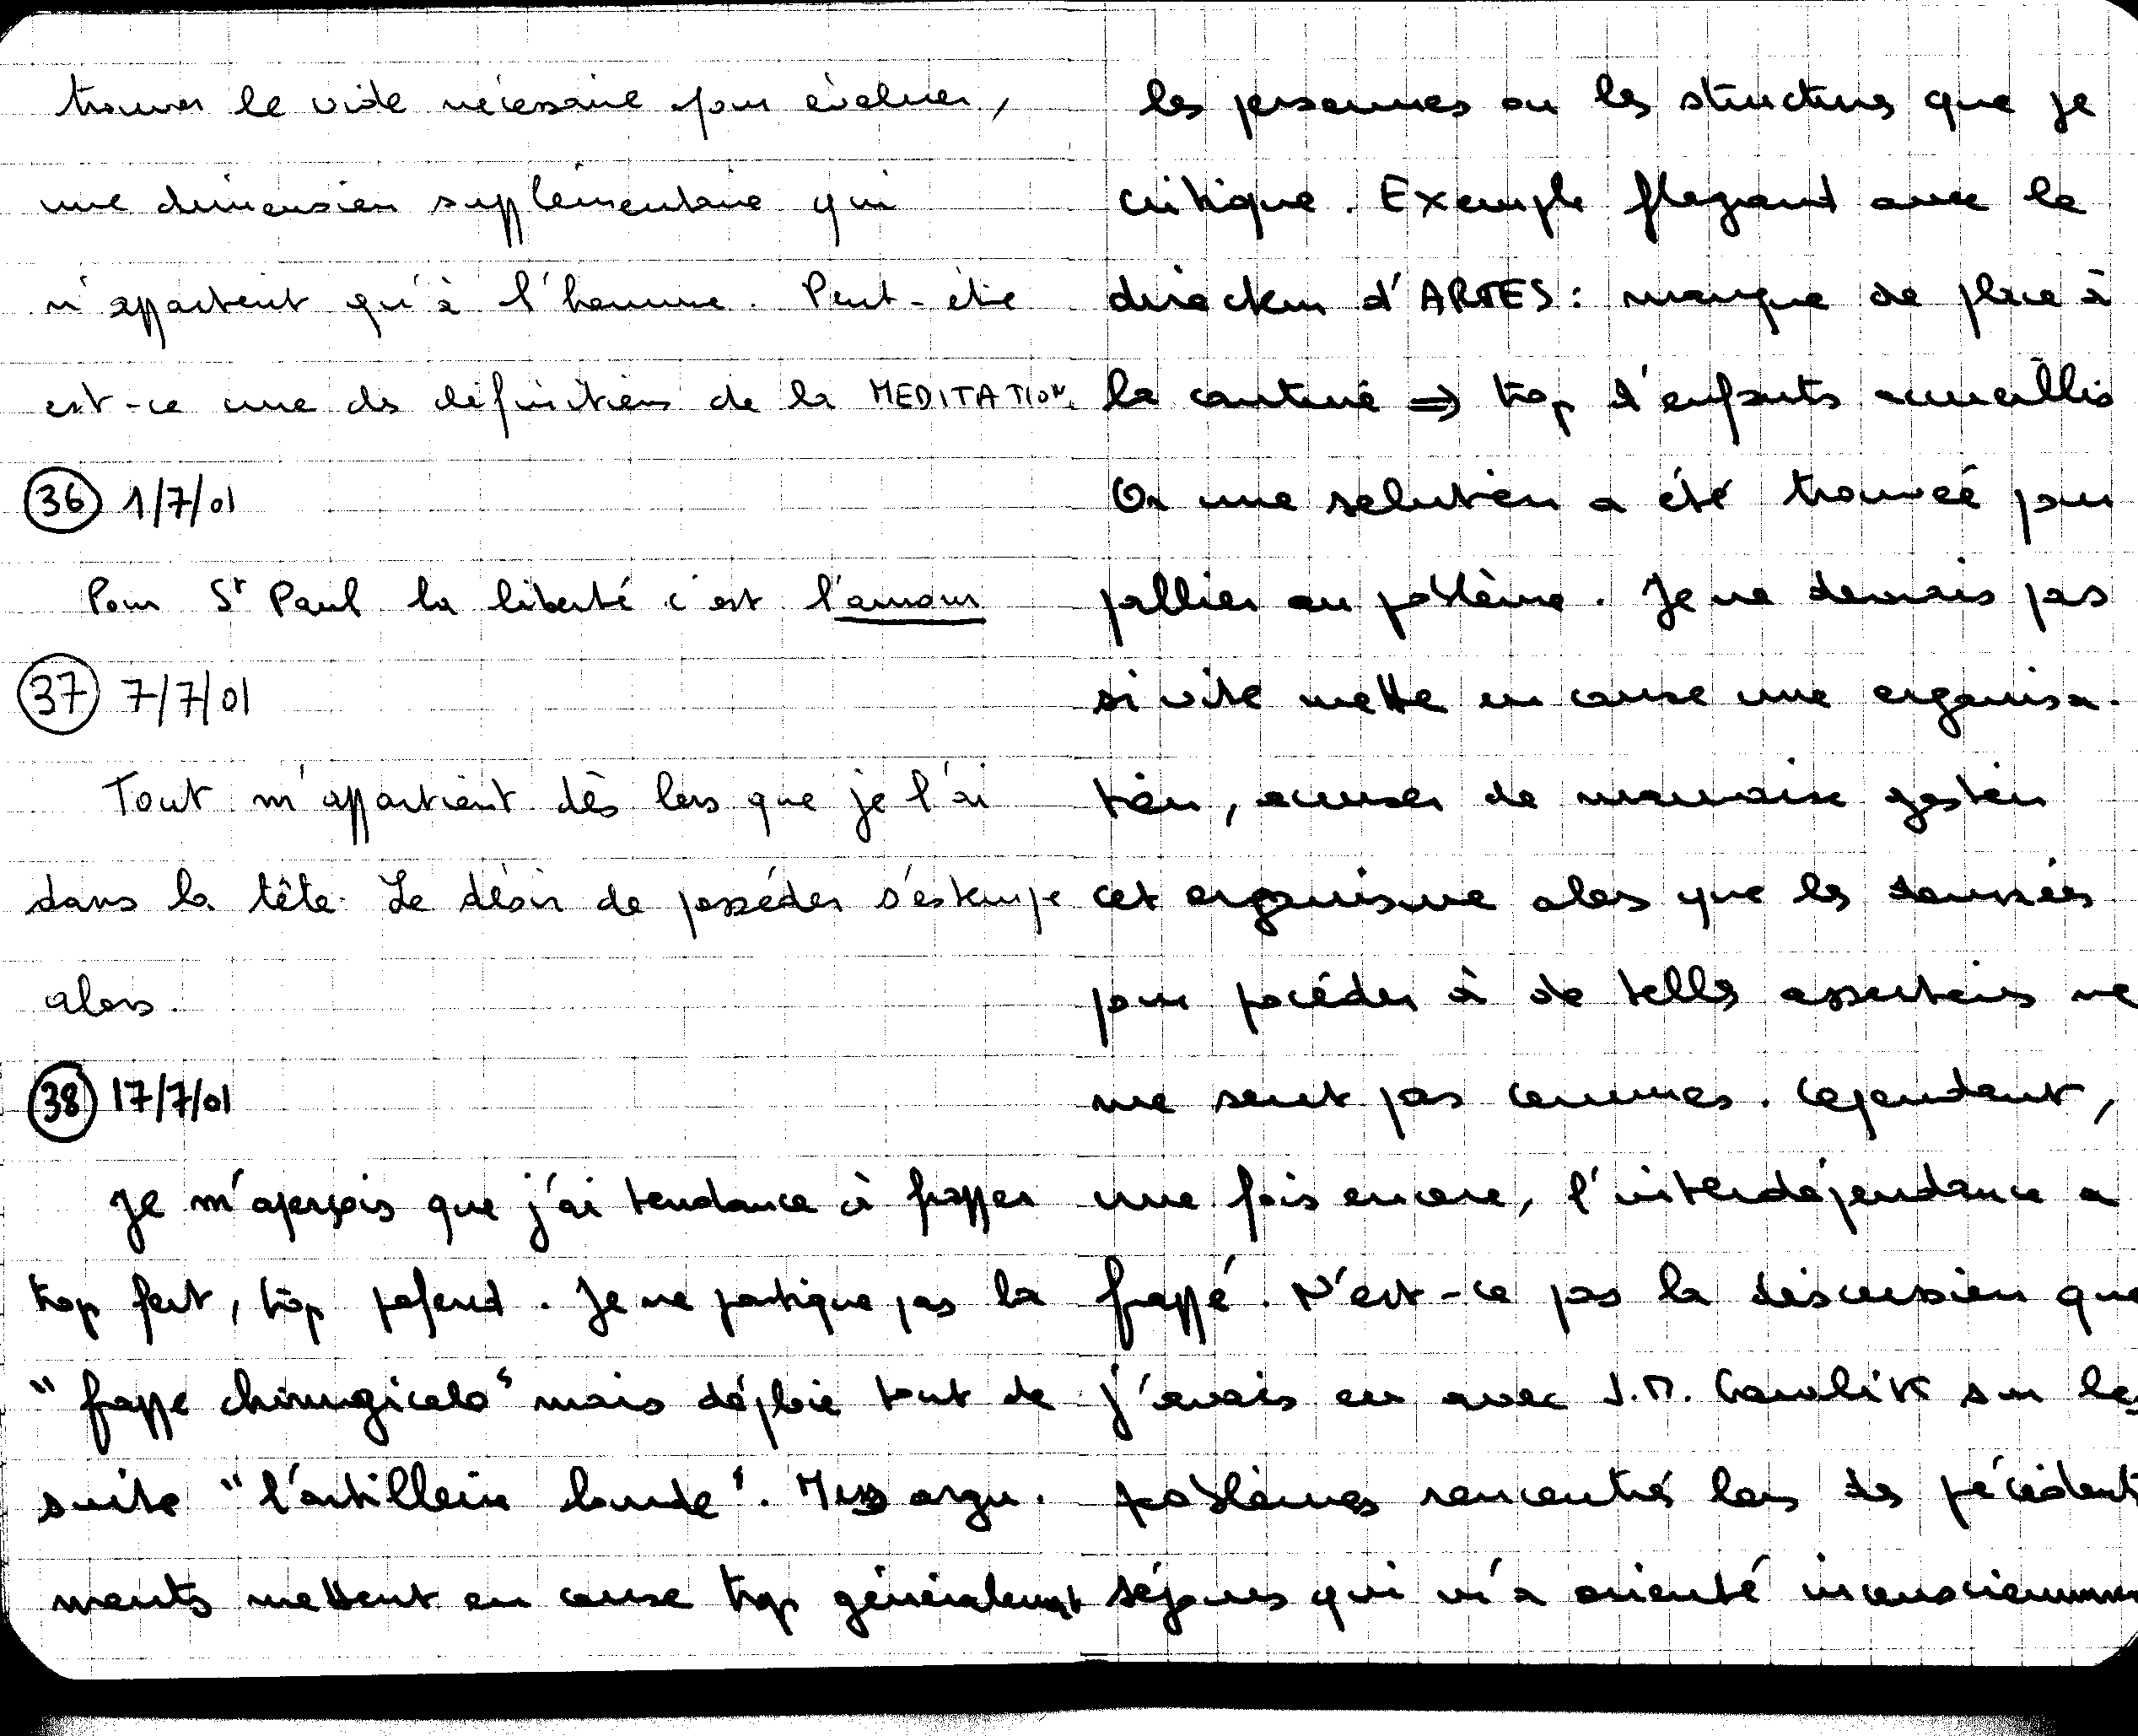 trouver le vide nécessaire pour évoluer,
une dimension supplémentaire qui
n'appartient qu'à l'homme. Peut-être
est-ce une des définitions de la MEDITATION.
36 1/7/01
Pour St Paul la liberté c'est l'amour
37 7/7/01
Tout m'appartient dès lors que je l'ai
dans la tête. Le désir de posséder s'estompe
alors.
38 17/7/01
Je m'aperçois que j'ai tendance à frapper
trop fort, trop profond. Je ne pratique pas la
"frappe chirurgicale" mais déploie tout de
suite "l'artillerie lourde". Mes argu-
ments mettent en cause trop généralement
les personnes ou les structures que je
critique. Exemple flagrant avec le
directeur d'ARTES : manque de place à
la cantine ⇒ trop d'enfants accueillis
Or une solution a été trouvée pour
pallier au problème. Je ne devrais pas
si vite mettre en cause une organisa-
tion, accuser de mauvaise gestion
cet organisme alors que les données
pour procéder à de telles assertions ne
me sont pas connues. Cependant,
une fois encore, l'interdépendance a
frappé. N'est-ce pas la discussion que
j'avais eu avec J.M. sur les
problèmes rencontrés lors des précédents
séjours qui m'a orienté inconsciemment